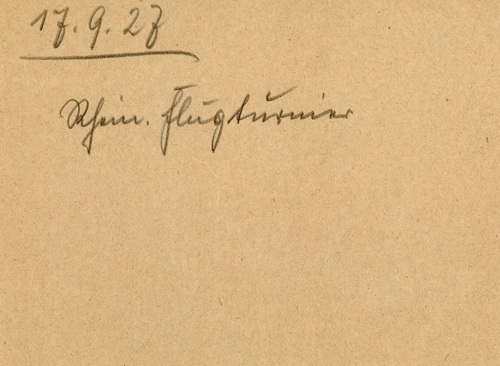 17.9.27
Rhein. Flugturnier